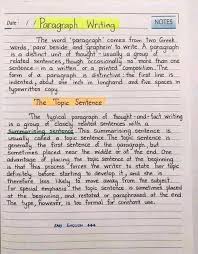 Date: / / Paragraph Writing NOTES
The word 'paragraph' comes from two Greek
words, 'para' beside and 'graphein' to write. A paragraph
is a distinct unit of thought - usually a group of
related sentences, though occasionally no more than one
sentence - in a written or a printed composition. The
form of a paragraph is distinctive: the first line is
indented, about one inch in longhand and five spaces in
typewritten copy.
The Topic Sentence
The typical paragraph of thought-and-fact writing
is a group of closely related sentences with a
Summarising sentence. This summarising sentence is
usually called a topic sentence. The topic sentence is
generally the first sentence of the paragraph, but
sometimes placed near the middle or at the end. One
advantage of placing the topic sentence at the beginning
is that this process forces the writer to state his topic
definitely before starting to develop it, and she is
therefore less likely to move away from the subject.
For special emphasis the topic sentence is sometimes placed
at the beginning, and restated or paraphrased at the end
This type, however, is too formal for constant use.
ENGLISH